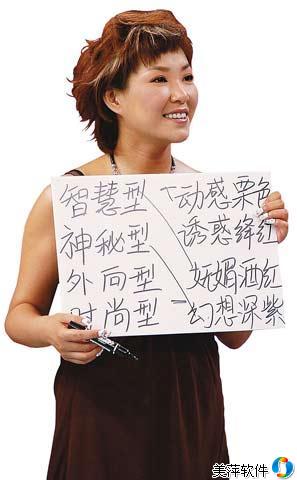 智慧型 动感栗色
神秘型 诱惑绛红
外向型 妩媚酒红
时尚型 幻想深紫
美萍软件